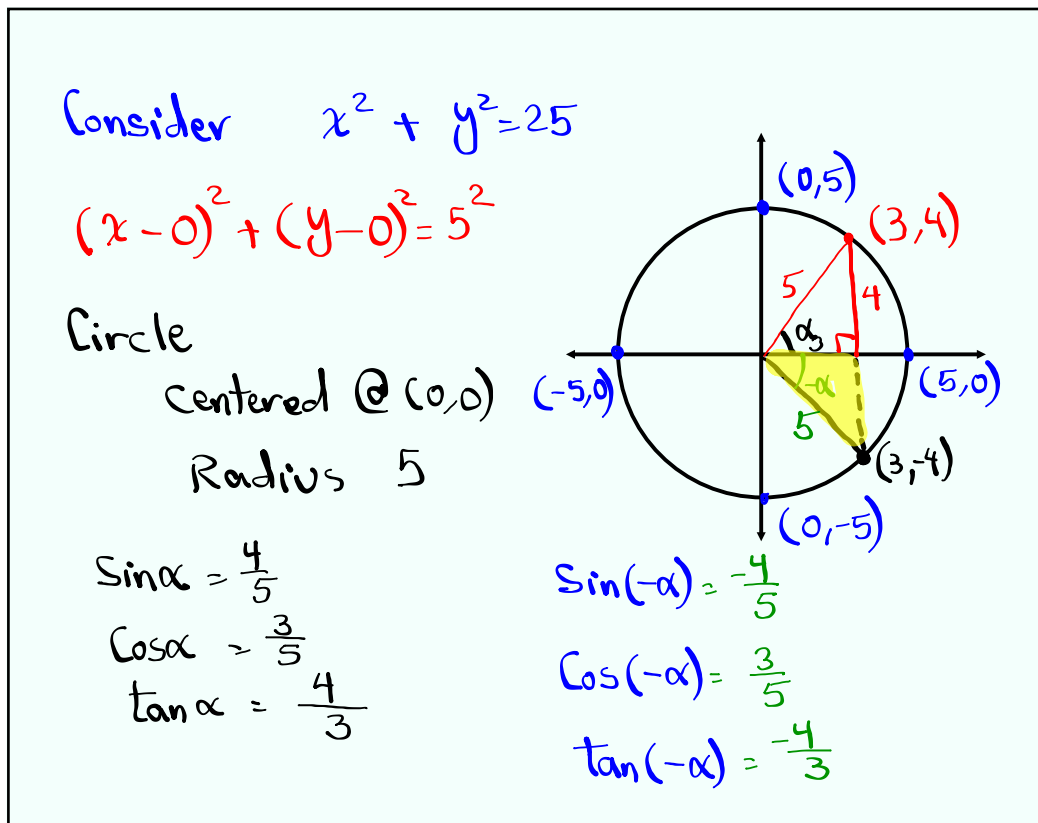 Consider x² + y² = 25
(x-0)² + (y-0)² = 5²
Circle
centered @ (0,0)
Radius 5
sinα = 4/5
Cosα = 3/5
tanα = 4/3
(0,5)
(3,4)
5
4
α
3
(-5,0)
(5,0)
-α
5
(3,-4)
(0,-5)
Sin(-α) = -4/5
Cos(-α) = 3/5
tan(-α) = -4/3